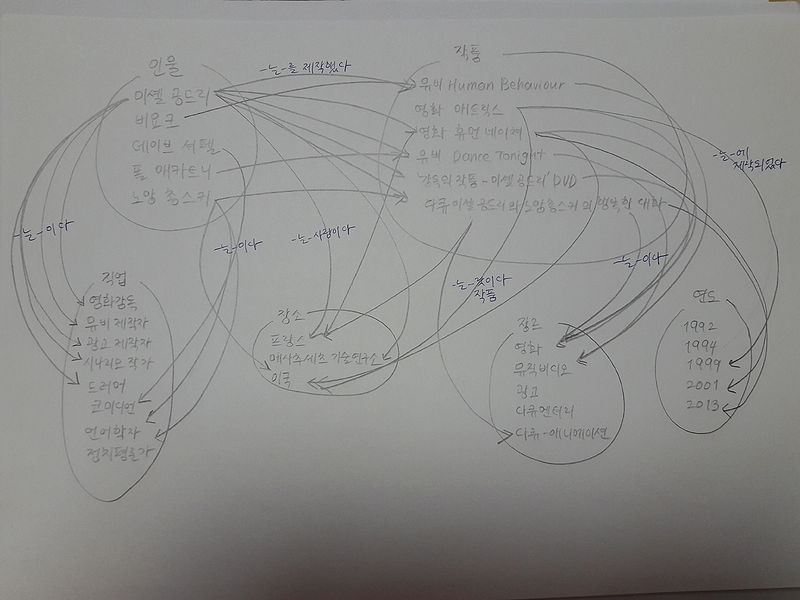 인물
미셸 공드리
비요크
데이브 셔펠
폴 매카트니
노암 촘스키
-는-를 제작했다
작품
뮤비 Human Behaviour
영화 매트릭스
영화 휴먼 네이쳐
뮤비 Dance Tonight
'감독의 작품-미셸 공드리' DVD
다큐 미셸 공드리와 노암 촘스키의 행복한 대화
-는-에
제작되었다
-는-이다
-는-이다
-는-사람이다
-는-이다
작품
-는-이다
직업
영화감독
뮤비 제작자
광고 제작자
시나리오 작가
드러머
코미디언
언어학자
정치평론가
장소
프랑스
매사추세츠 기술연구소
미국
장르
영화
뮤직비디오
광고
다큐멘터리
다큐-애니메이션
연도
1992
1994
1999
2001
2013